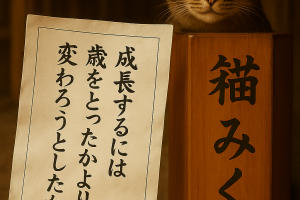 成長するには
歳をとったかより
変わろうとしたか
猫みく